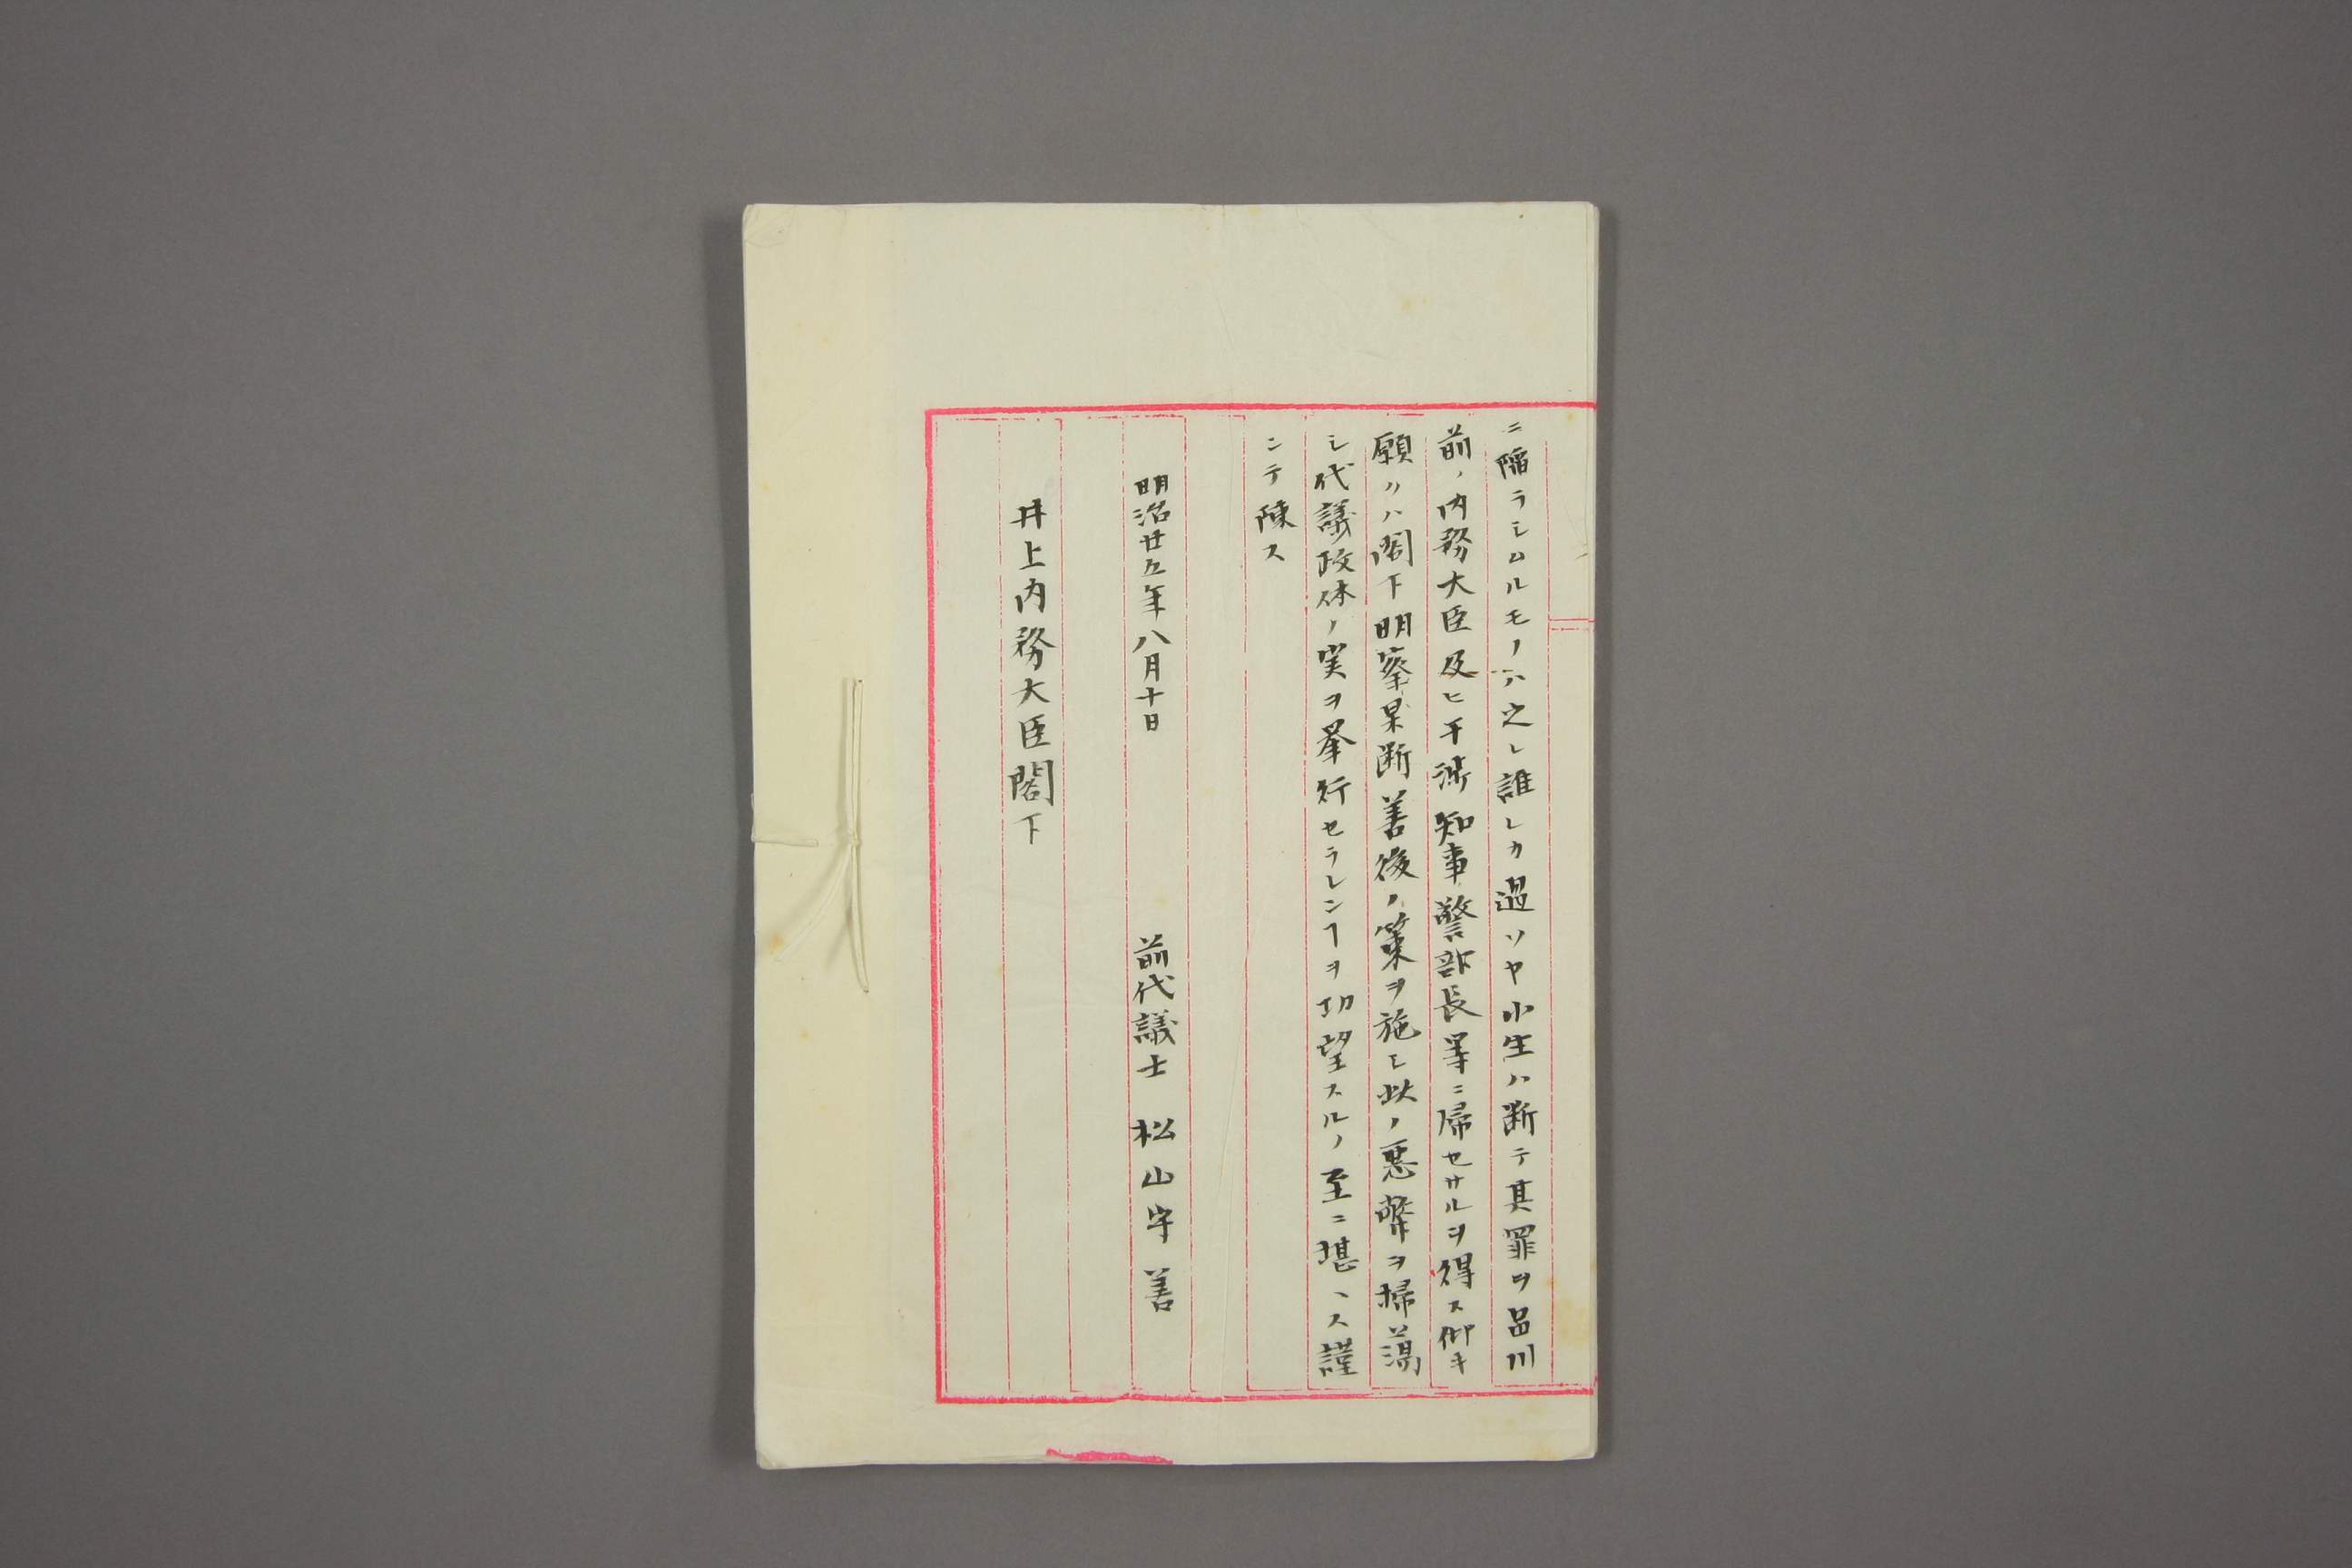 ニ陥ラシムルモノハ之レ誰レカ過ソヤ小生ハ断テ其罪ヲ品川
前ノ内務大臣及ヒ干渉知事警部長等ニ帰セサルヲ得ス仰キ
願ハ閣下明察果断善後ノ策ヲ施シ此ノ悪弊ヲ掃蕩
シ代議政体ノ実ヲ挙行セラレンヿヲ切望スルノ至ニ堪ヘス謹
ンテ陳ス
明治廿五年八月十日
前代議士 松山守善
井上内務大臣閣下